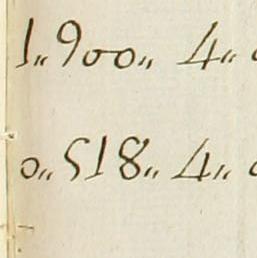 1„900„ 4„
0„518„ 4„